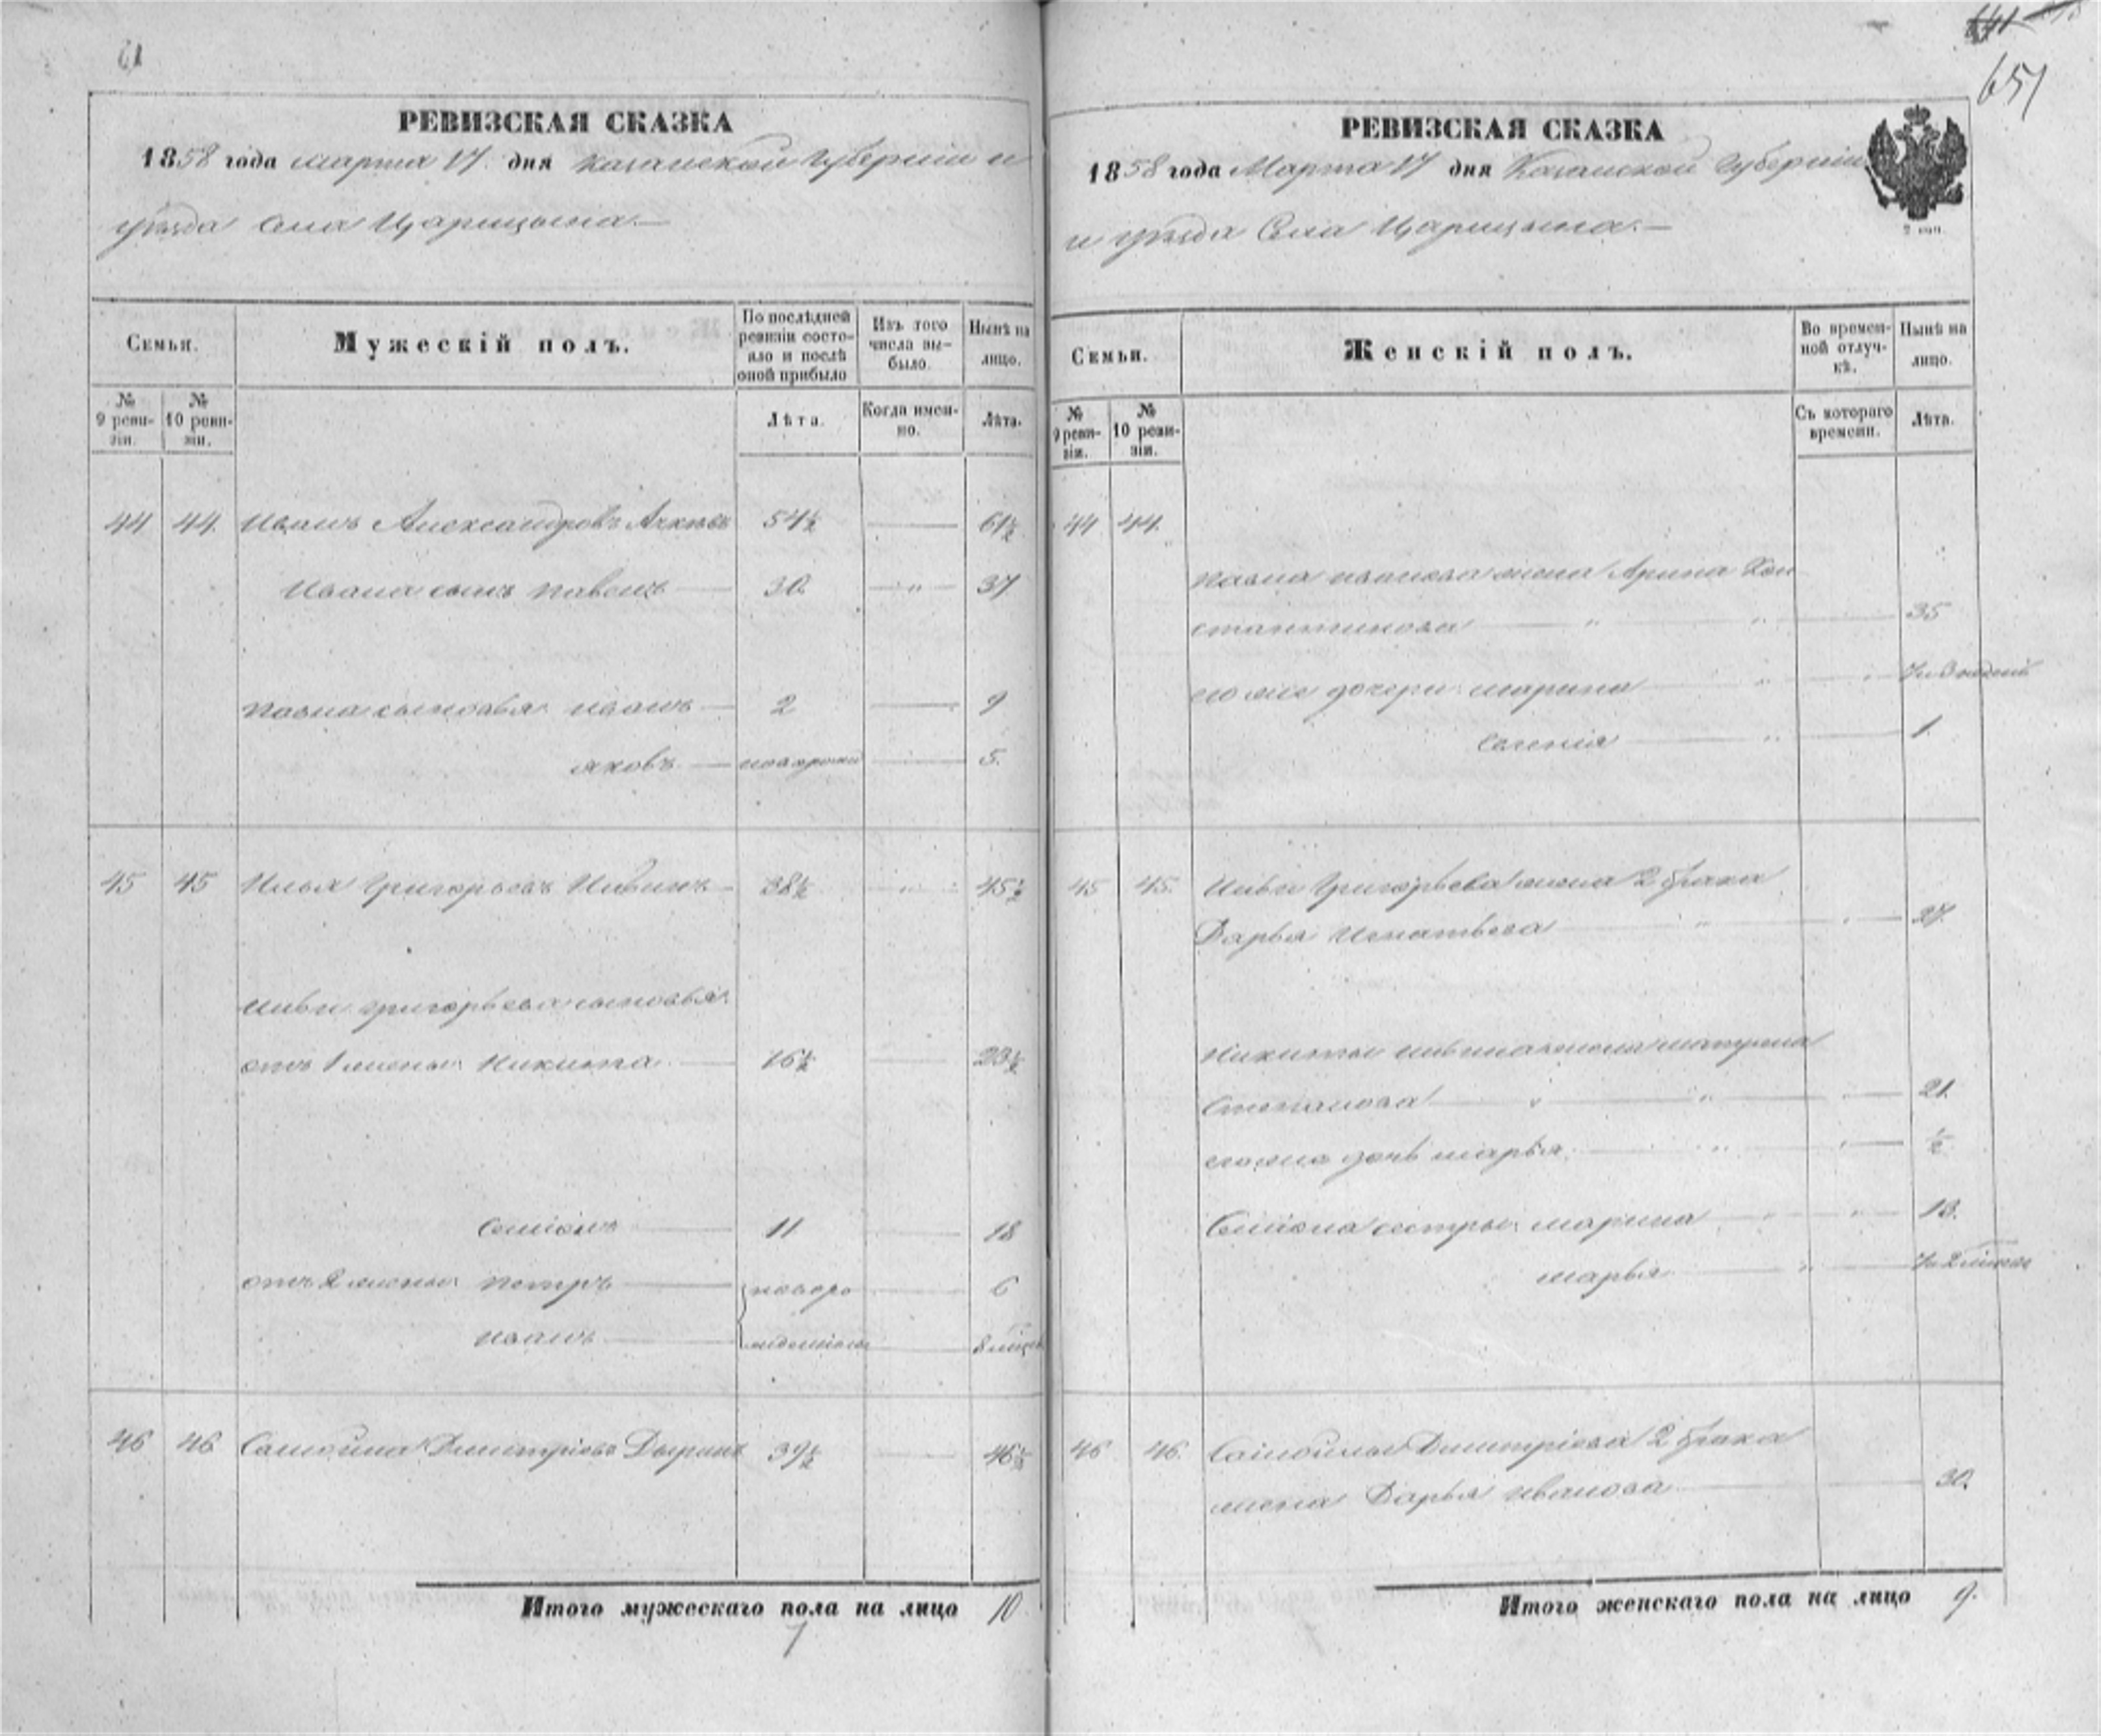 61
РЕВИЗСКАЯ СКАЗКА
1858 года марта 17 дня Казанской Губернiи и
уѣзда села Царицына.—
Семьи.
Мужескiй полъ.
По послѣдней ревизiи состояло и послѣ оной прибыло
Изъ того числа выбыло.
Нынѣ на лицо.
№ 9 ревизiи.
№ 10 ревизiи.
Лѣта.
Когда именно.
Лѣта.
44 44. Иванъ Александровъ 54½ — 61½
Ивана сынъ Павелъ — 30. — " — 37
Павла сыновья Иванъ — 2 — 9
Яковъ — — 5.
45 45 Илья Григорьевъ Ильинъ — 38½ — " — 45½
Ильи Григорьева сыновья:
отъ 1 жены: Никита — 16½ — 23½
Семiонъ — 11 — 18
отъ 2 жены: Петръ — новоро — 6
Иванъ — жденные — 8 мѣсец
46 46 Самойла Дмитрiевъ Дыринъ 39½ — 46½
Итого мужескаго пола на лицо 10
7
651
РЕВИЗСКАЯ СКАЗКА
1858 года Марта 17 дня Казанской Губернiи
и уѣзда Села Царицына.—
Семьи.
Женскiй полъ.
Во временной отлучкѣ.
Нынѣ на лицо.
№ 9 ревизiи.
№ 10 ревизiи.
Съ котораго времени.
Лѣта.
44 44.
Павла Иванова жена Арина Кон
стантинова — " — " — 35
его же дочери: Марина — " — 7 и 3 недѣль
Евгенiя — " — 1.
45 45. Ильи Григорьева жена 2 брака
Дарья Игнатьева — " — 27.
Никиты Ильина жена Матрена
Степанова — " — " — 21.
его же дочь Марья. — " — ½
Семiона сестры: Марина — " — 13.
Марья — " —
46 46. Самойлы Дмитрiева 2 брака
жена Дарья Иванова — 30.
Итого женскаго пола на лицо 9.